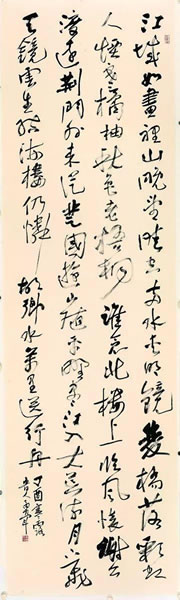 江城如畫裡山晚望晴空兩水夾明鏡雙橋落彩虹
人煙寒橘柚秋色老梧桐誰念北樓上臨風懷謝公
渡遠荊門外來從楚國遊山隨平野盡江入大荒流月下飛
天鏡雲生結海樓仍憐故鄉水萬里送行舟丁酉寒露